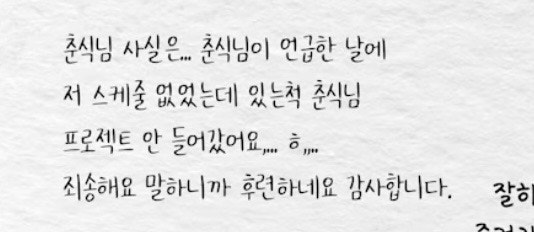 춘식님 사실은... 춘식님이 언급한 날에
저 스케줄 없었는데 있는척 춘식님
프로젝트 안 들어갔어요,... ㅎ,,..
죄송해요 말하니까 후련하네요 감사합니다.
잘히